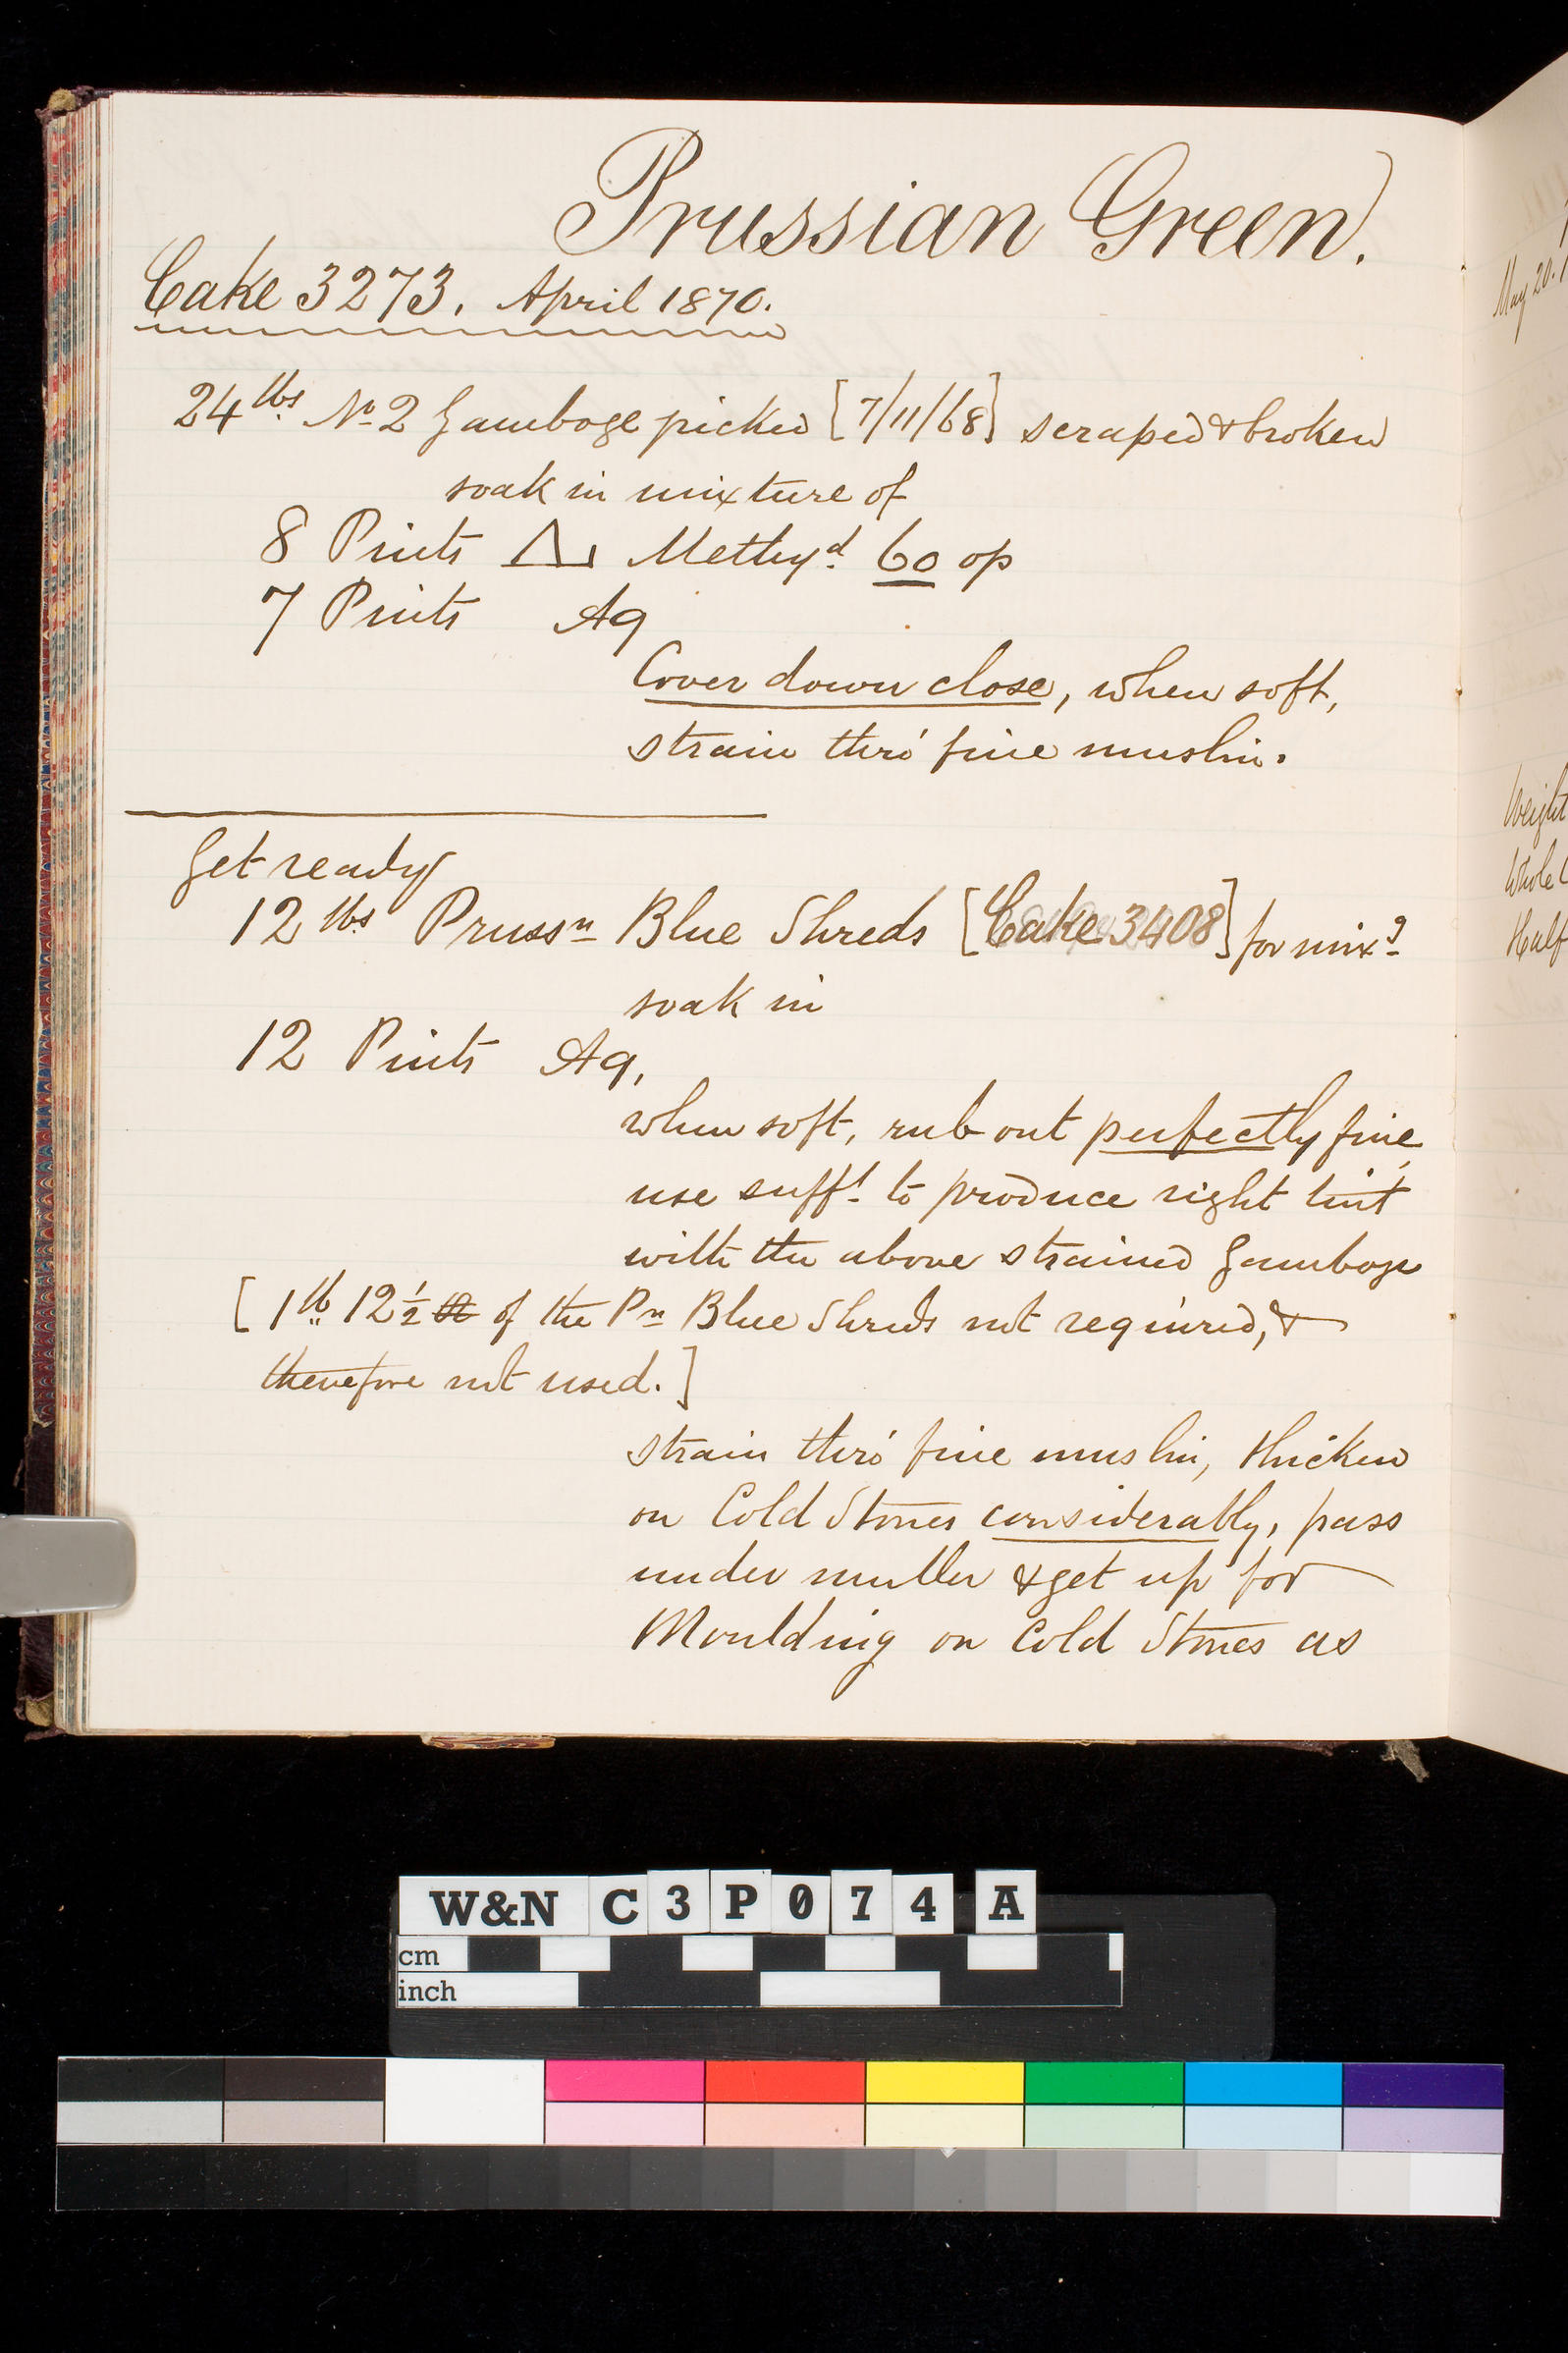 Prussian Green.
Cake 3273. April 1870.
24 lbs No 2 Gamboge picked [7/11/68] scraped & broken
soak in mixture of
8 Pints Methyd 60 op
7 Pints Aq
Cover down close, when soft,
strain thro' fine muslin.
Get ready
12 lbs Prussn Blue Shreds [Cake 3408] for mixg
soak in
12 Pints Aq,
when soft, rub out perfectly fine,
use sufft to produce right tint
with the above strained Gamboge
[1 lb 12 1/2 of the Pn Blue Shreds not required, &
therefore not used.]
strain thro' fine muslin, thicken
on Cold Stones considerably, pass
under muller & get up for
Moulding on Cold Stones as
May 20.
Weight
Whole C
Half
W&N C3P074A
cm
inch